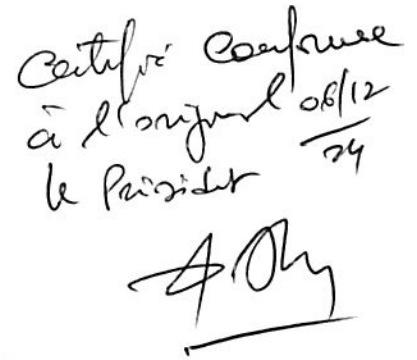 Certifié Conforme
à l'original 06/12/24
le Président